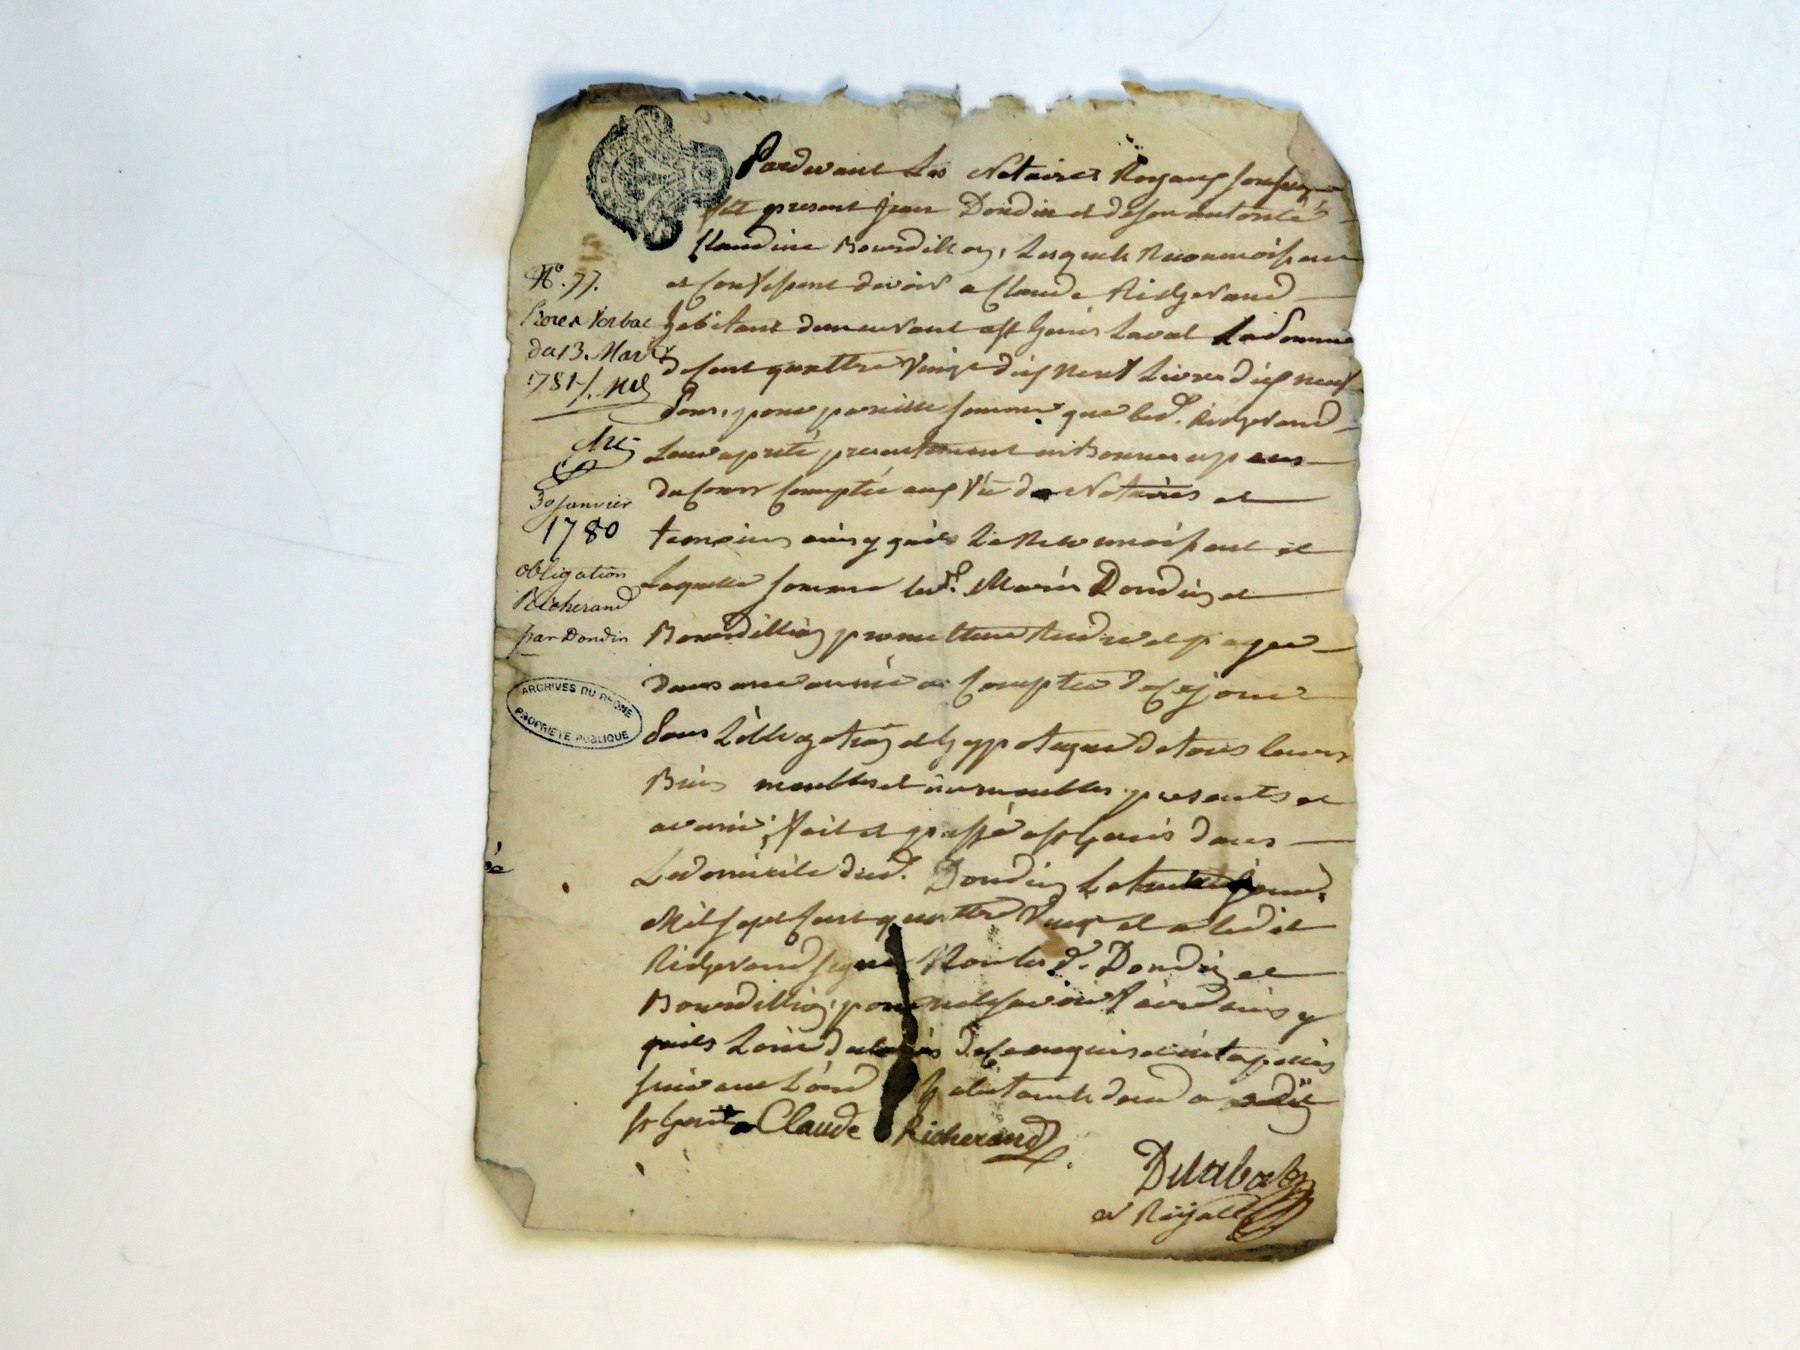 Pardevant Les Notaires Royaux soussignés
fut present jean Dondin et de son autorité
Claudine Bourdillon, Lesquels Reconnoissent
et Confessent devoir a Claude Richerand
habitant demeurant a St Genis Laval La Somme
de Cent quattre Vingt dix neuf Livres dix neuf
Sous, pour pareille somme que led. Richerand
Leur a preté presentement en Bonnes especes
du Cours Comptée aux Vû de Notaires et
temoins ainsy quils Le Reconnoissent et
Laquelle somme led. Mariés Dondin et
Bourdillion promettent Rendre et payer
dans une année a Compter de Ce jour
Sous L'obligation et hyppoteque de tous leurs
Biens meubles et immeubles presents et
avenir; fait et passé a St Genis dans
Le domicile dud. Dondin Le trente janv.
Mil sept Cent quattre Vingt et a ledit
Richerand signé Non les d. Dondin et
Bourdillion, pour ne sçavoir faire ainsy
quils L'ont de Ce enquis et interpellés
suivant L'ord
St Genis Claude Richerand
Delabal
Royal
N°. 77.
du 13. Mars
1781
30 janvier
1780
obligation
Richerand
par Dondin
ARCHIVES DU RHONE
PROPRIETE PUBLIQUE